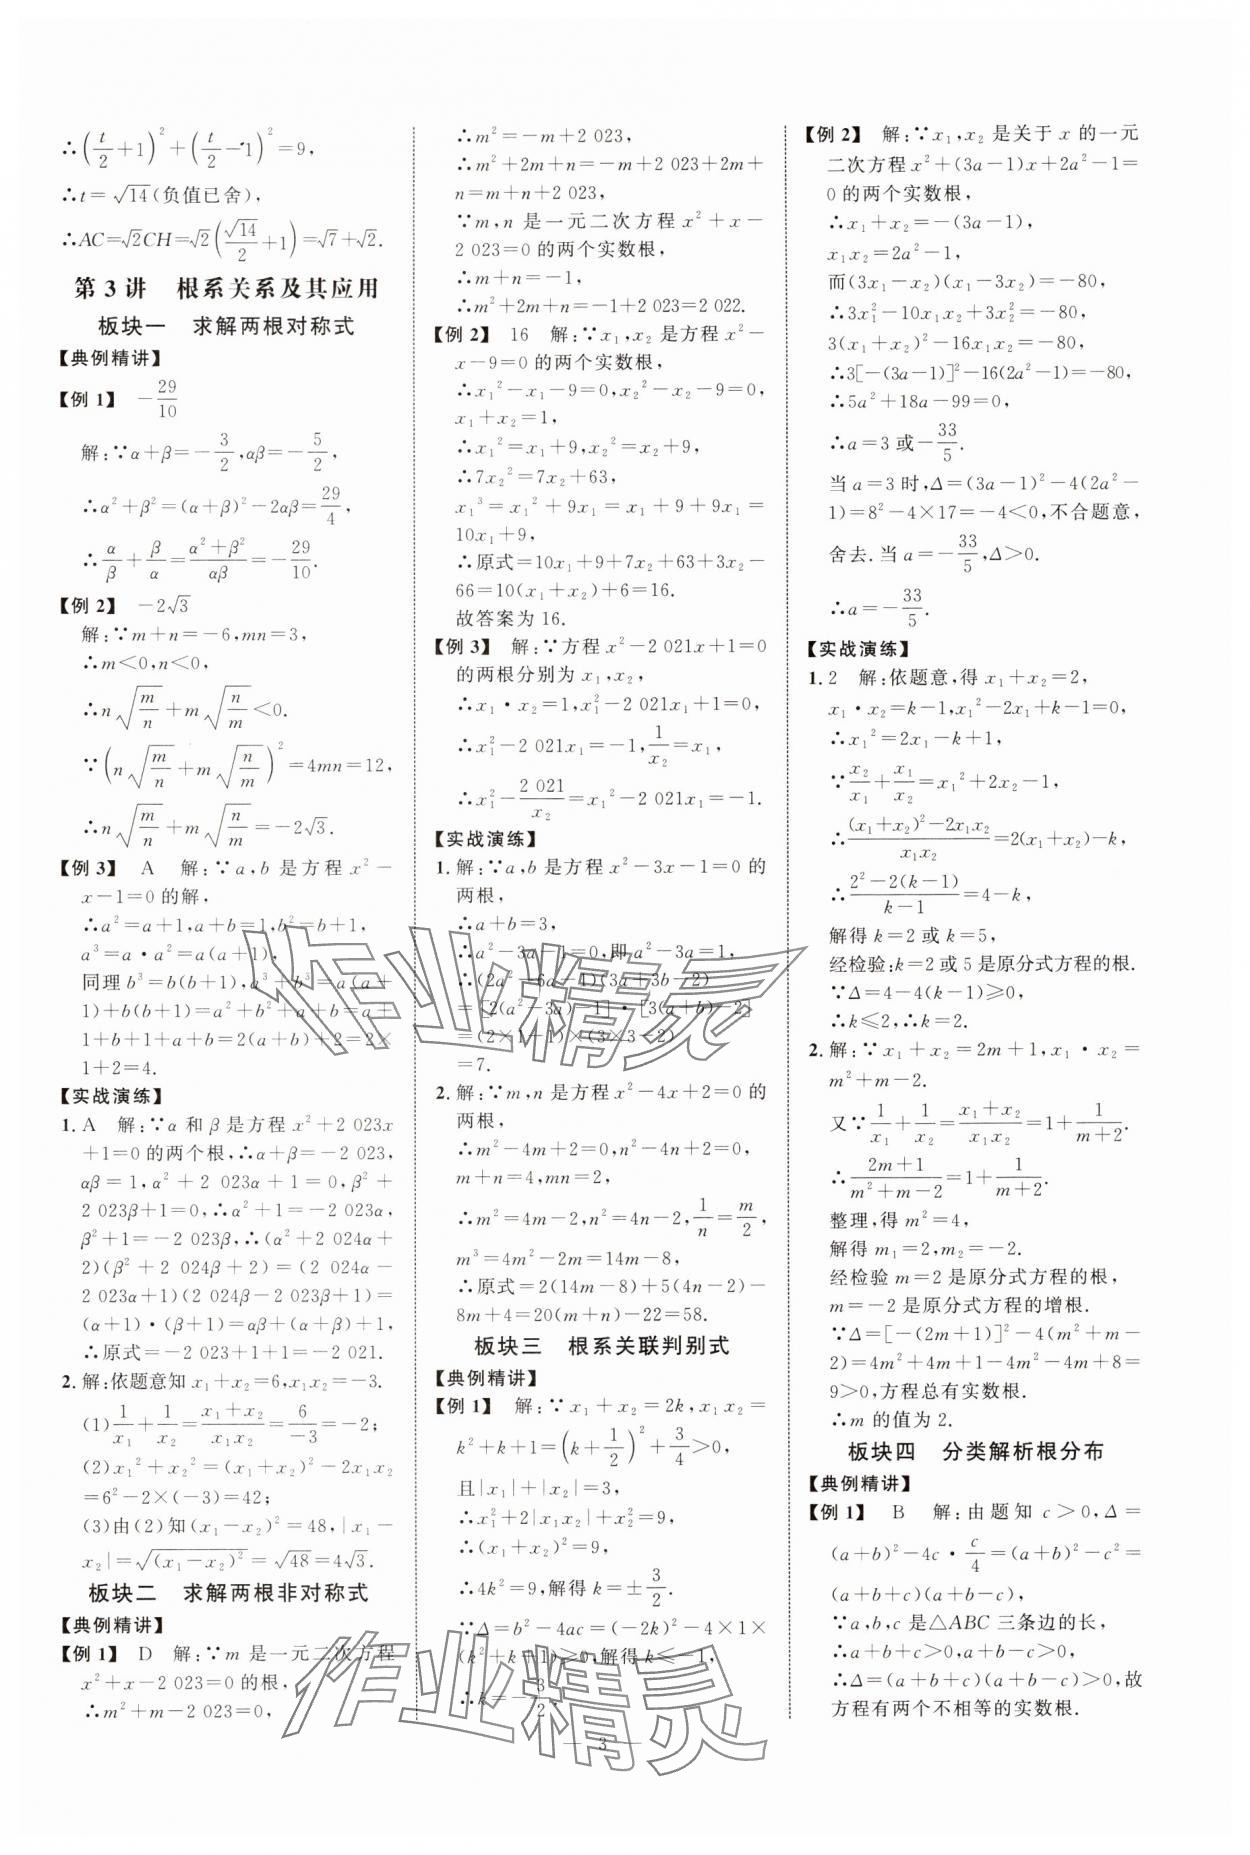 ∴(t/2+1)²+(t/2-1)²=9,
∴t=√14(负值已舍),
∴AC=√2CH=√2(√14/2+1)=√7+√2.
第3讲 根系关系及其应用
板块一 求解两根对称式
【典例精讲】
【例1】 -29/10
解:∵α+β=-3/2,αβ=-5/2,
∴α²+β²=(α+β)²-2αβ=29/4,
∴α/β+β/α=(α²+β²)/αβ=-29/10.
【例2】 -2√3
解:∵m+n=-6,mn=3,
∴m<0,n<0,
∴n√(m/n)+m√(n/m)<0.
∵(n√(m/n)+m√(n/m))²=4mn=12,
∴n√(m/n)+m√(n/m)=-2√3.
【例3】 A 解:∵a,b是方程x²-
x-1=0的解,
∴a²=a+1,a+b=1,b²=b+1,
a³=a·a²=a(a+1),
同理b³=b(b+1),a³+b³=a(a+
1)+b(b+1)=a²+b²+a+b=a+
1+b+1+a+b=2(a+b)+2=2×
1+2=4.
【实战演练】
1. A 解:∵α和β是方程x²+2 023x
+1=0的两个根,∴α+β=-2 023,
αβ=1,α²+2 023α+1=0,β²+
2 023β+1=0,∴α²+1=-2 023α,
β²+1=-2 023β,∴(α²+2 024α+
2)(β²+2 024β+2)=(2 024α-
2 023α+1)(2 024β-2 023β+1)=
(α+1)·(β+1)=αβ+(α+β)+1,
∴原式=-2 023+1+1=-2 021.
2. 解:依题意知x₁+x₂=6,x₁x₂=-3.
(1)1/x₁+1/x₂=(x₁+x₂)/x₁x₂=6/-3=-2;
(2)x₁²+x₂²=(x₁+x₂)²-2x₁x₂
=6²-2×(-3)=42;
(3)由(2)知(x₁-x₂)²=48,|x₁-
x₂|=√(x₁-x₂)²=√48=4√3.
板块二 求解两根非对称式
【典例精讲】
【例1】 D 解:∵m是一元二次方程
x²+x-2 023=0的根,
∴m²+m-2 023=0,
∴m²=-m+2 023,
∴m²+2m+n=-m+2 023+2m+
n=m+n+2 023,
∵m,n是一元二次方程x²+x-
2 023=0的两个实数根,
∴m+n=-1,
∴m²+2m+n=-1+2 023=2 022.
【例2】 16 解:∵x₁,x₂是方程x²-
x-9=0的两个实数根,
∴x₁²-x₁-9=0,x₂²-x₂-9=0,
x₁+x₂=1,
∴x₁²=x₁+9,x₂²=x₂+9,
∴7x₂²=7x₂+63,
x₁³=x₁²+9x₁=x₁+9+9x₁=
10x₁+9,
∴原式=10x₁+9+7x₂+63+3x₂-
66=10(x₁+x₂)+6=16.
故答案为16.
【例3】 解:∵方程x²-2 021x+1=0
的两根分别为x₁,x₂,
∴x₁·x₂=1,x₁²-2 021x₁+1=0,
∴x₁²-2 021x₁=-1,1/x₂=x₁,
∴x₁²-2 021/x₂=x₁²-2 021x₁=-1.
【实战演练】
1. 解:∵a,b是方程x²-3x-1=0的
两根,
∴a+b=3,
∴a²-3a-1=0,即a²-3a=1,
∴(2a²-6a-1)(3a+3b-2)
=[2(a²-3a)-1]·[3(a+b)-2]
=(2×1-1)×(3×3-2)
=7.
2. 解:∵m,n是方程x²-4x+2=0的
两根,
∴m²-4m+2=0,n²-4n+2=0,
m+n=4,mn=2,
∴m²=4m-2,n²=4n-2,1/n=m/2,
m³=4m²-2m=14m-8,
∴原式=2(14m-8)+5(4n-2)-
8m+4=20(m+n)-22=58.
板块三 根系关联判别式
【典例精讲】
【例1】 解:∵x₁+x₂=2k,x₁x₂=
k²+k+1=(k+1/2)²+3/4>0,
且|x₁|+|x₂|=3,
∴x₁²+2|x₁x₂|+x₂²=9,
∴(x₁+x₂)²=9,
∴4k²=9,解得k=±3/2.
∵Δ=b²-4ac=(-2k)²-4×1×
(k²+k+1)≥0,解得k≤-1,
∴k=-3/2.
【例2】 解:∵x₁,x₂是关于x的一元
二次方程x²+(3a-1)x+2a²-1=
0的两个实数根,
∴x₁+x₂=-(3a-1),
x₁x₂=2a²-1,
而(3x₁-x₂)(x₁-3x₂)=-80,
∴3x₁²-10x₁x₂+3x₂²=-80,
3(x₁+x₂)²-16x₁x₂=-80,
∴3[-(3a-1)]²-16(2a²-1)=-80,
∴5a²+18a-99=0,
∴a=3或-33/5.
当a=3时,Δ=(3a-1)²-4(2a²-
1)=8²-4×17=-4<0,不合题意,
舍去.当a=-33/5,Δ>0.
∴a=-33/5.
【实战演练】
1. 2 解:依题意,得x₁+x₂=2,
x₁·x₂=k-1,x₁²-2x₁+k-1=0,
∴x₁²=2x₁-k+1,
∵x₂/x₁+x₁/x₂=x₁²+2x₂-1,
∴((x₁+x₂)²-2x₁x₂)/x₁x₂=2(x₁+x₂)-k,
∴(2²-2(k-1))/(k-1)=4-k,
解得k=2或k=5,
经检验:k=2或5是原分式方程的根.
∵Δ=4-4(k-1)≥0,
∴k≤2,∴k=2.
2. 解:∵x₁+x₂=2m+1,x₁·x₂=
m²+m-2.
又∵1/x₁+1/x₂=(x₁+x₂)/x₁x₂=1+1/(m+2).
∴(2m+1)/(m²+m-2)=1+1/(m+2).
整理,得m²=4,
解得m₁=2,m₂=-2.
经检验m=2是原分式方程的根,
m=-2是原分式方程的增根.
∵Δ=[-(2m+1)]²-4(m²+m-
2)=4m²+4m+1-4m²-4m+8=
9>0,方程总有实数根.
∴m的值为2.
板块四 分类解析根分布
【典例精讲】
【例1】 B 解:由题知c>0,Δ=
(a+b)²-4c·c/4=(a+b)²-c²=
(a+b+c)(a+b-c),
∵a,b,c是△ABC三条边的长,
∴a+b+c>0,a+b-c>0,
∴Δ=(a+b+c)(a+b-c)>0,故
方程有两个不相等的实数根.
3
作业精灵
作业精灵